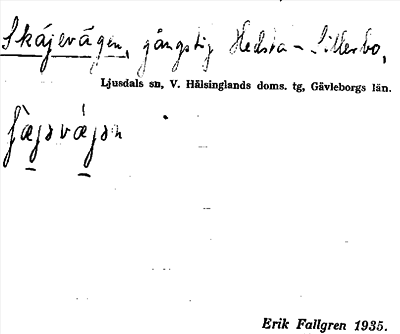 Skájevägen, gångstig Hedsta - Sillerbo,
Ljusdals sn, V. Hälsinglands doms. tg, Gävleborgs län.
Erik Fallgren 1935.